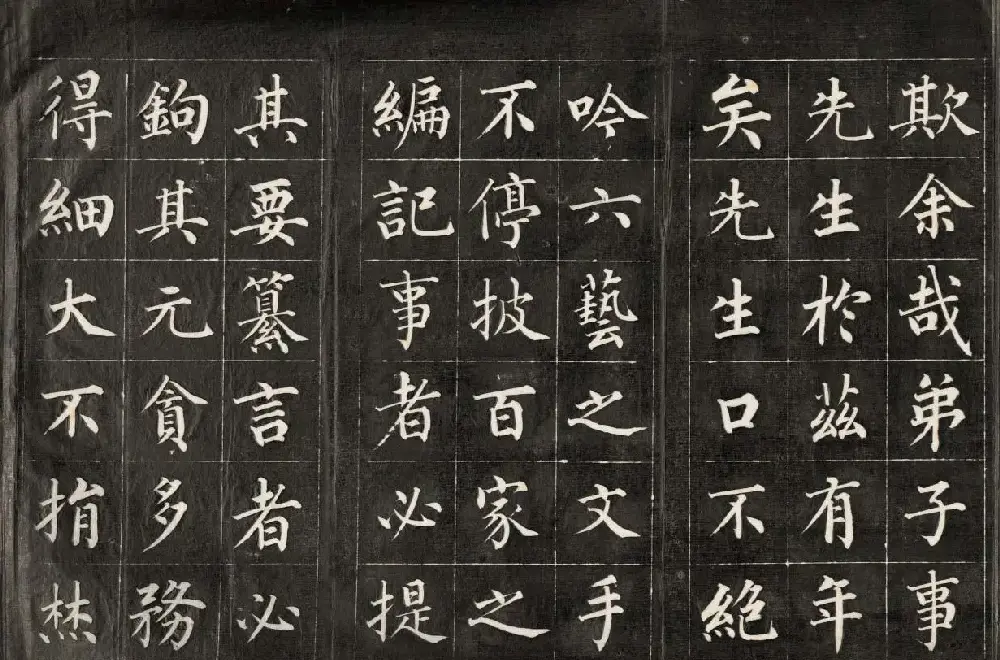 欺余哉弟子事
先生於茲有年
矣先生口不絶
吟六藝之文手
不停披百家之
編記事者必提
其要纂言者必
鉤其元貪多務
得細大不捐焚